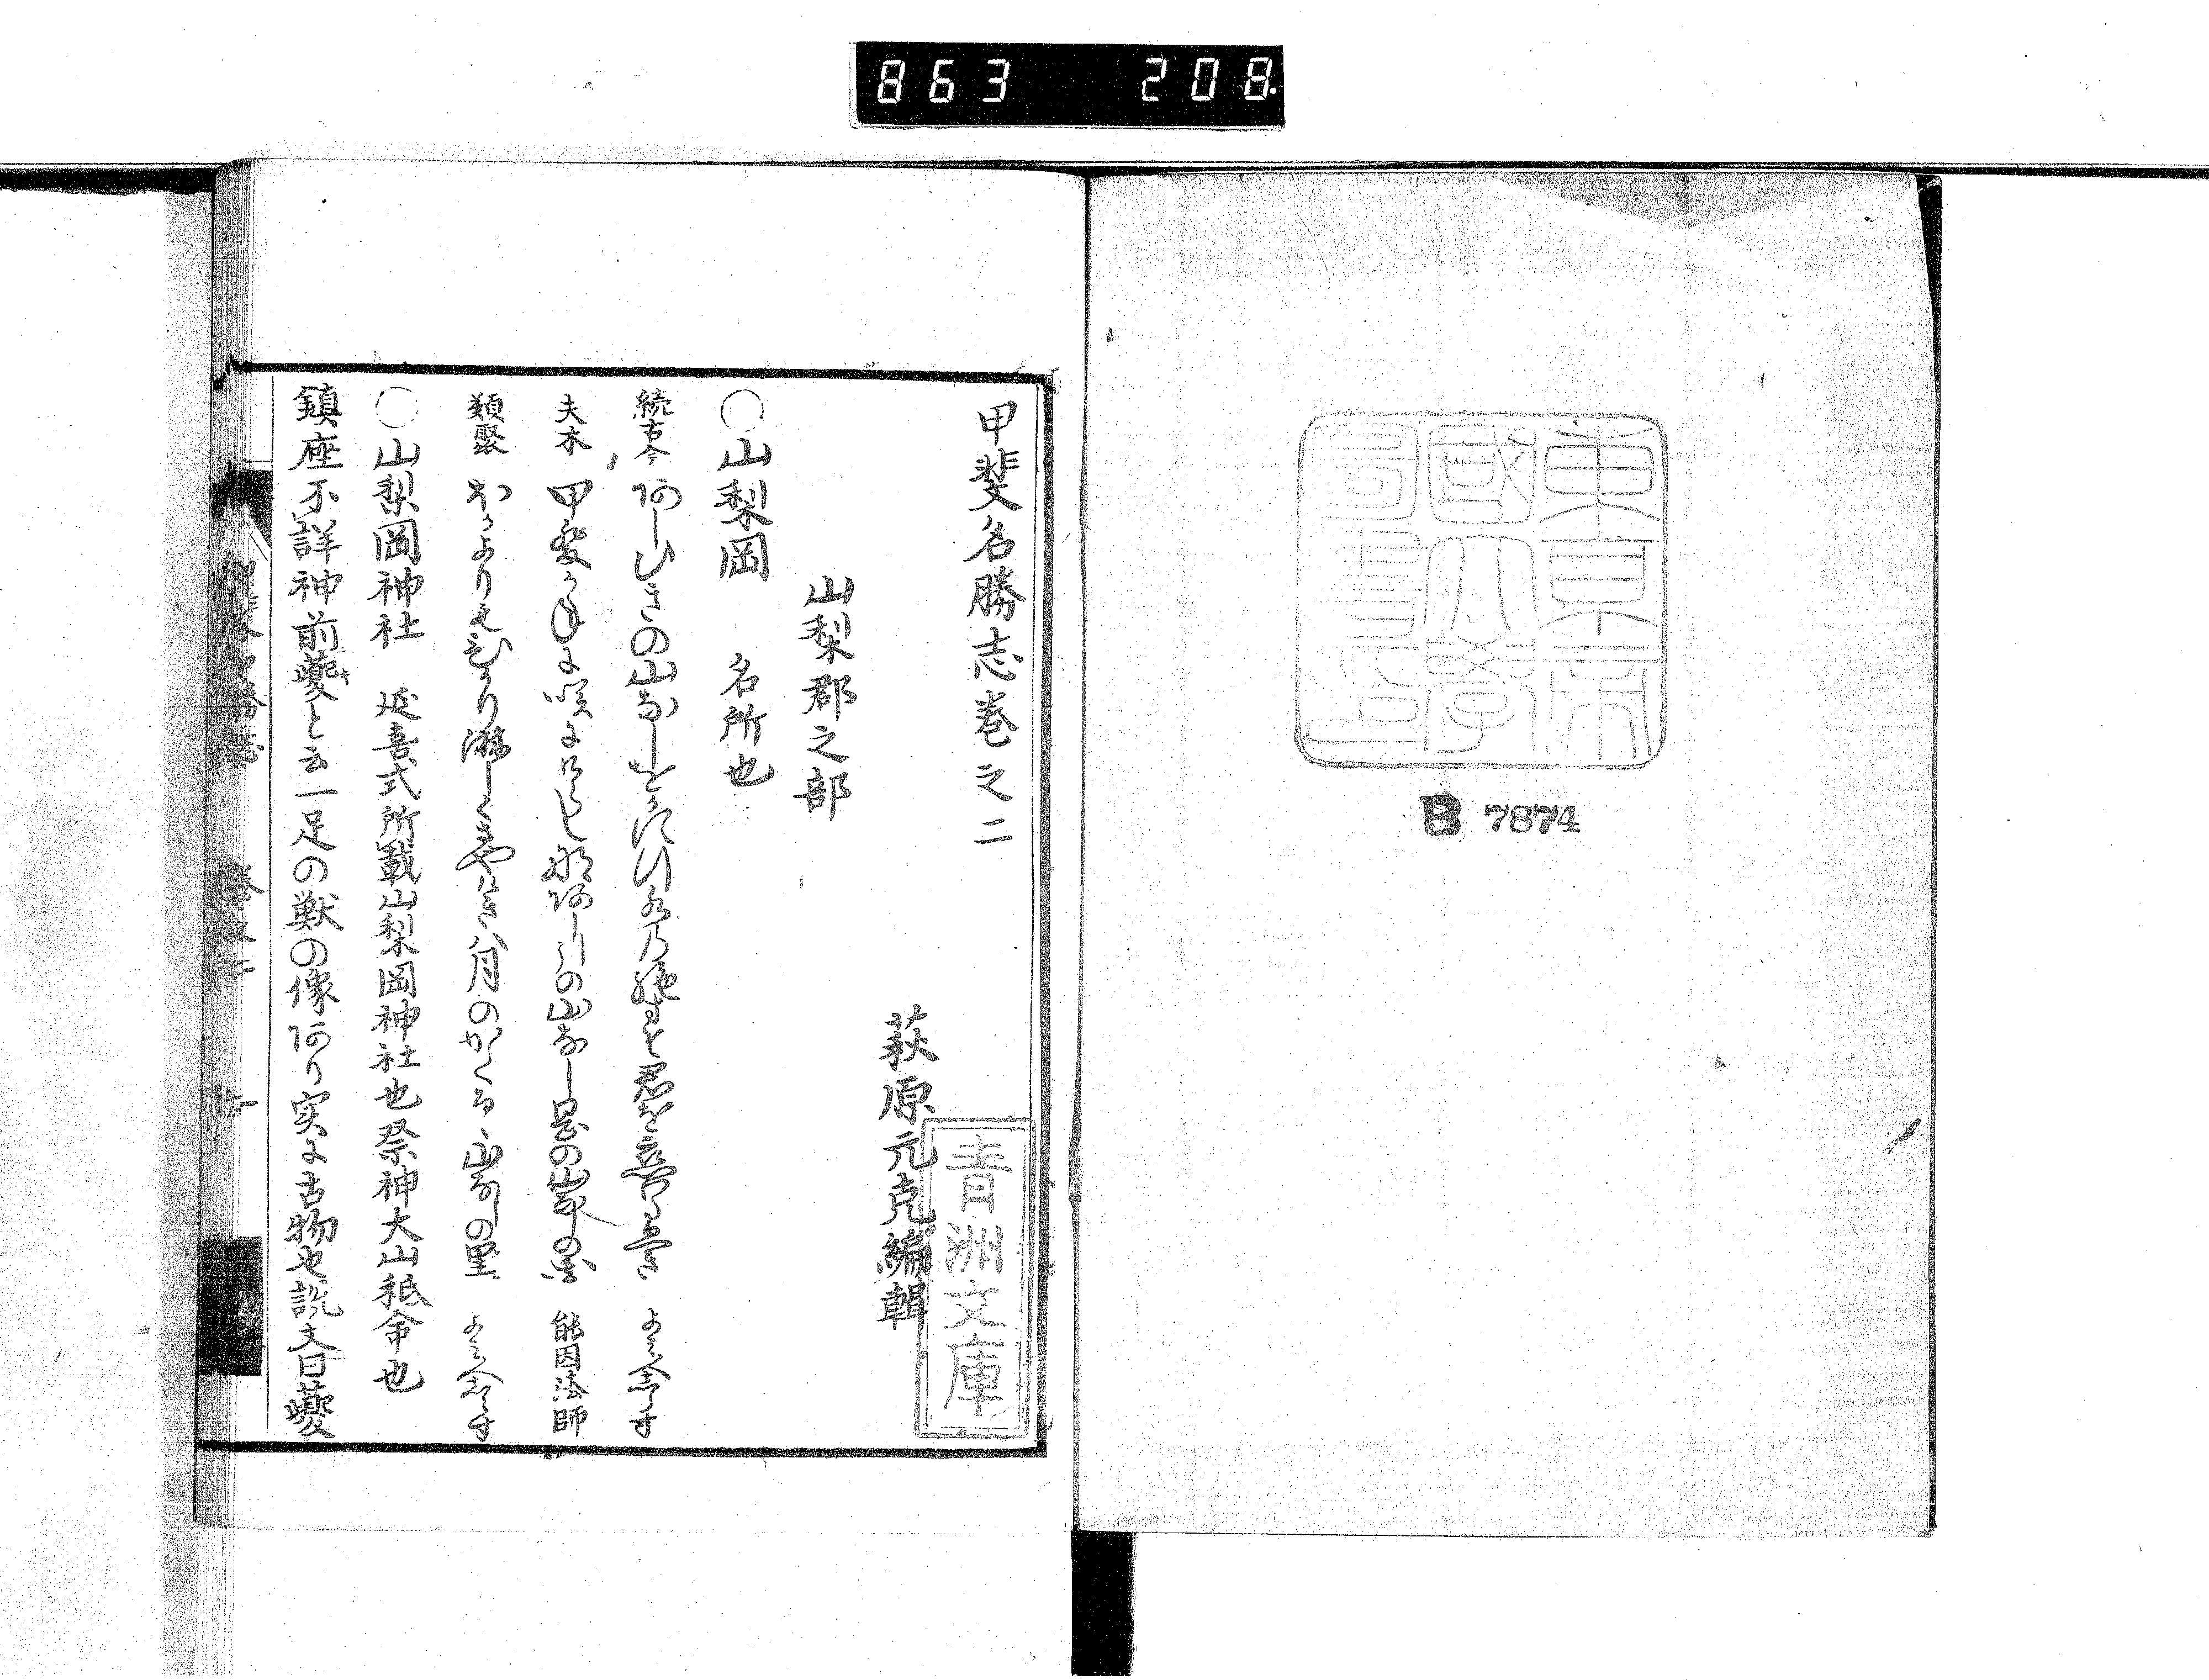 863 208
東京帝
國大學
圖書印
B 7874
甲斐名勝志巻之二
萩原元克編輯
青洲文庫
山梨郡之部
○山梨岡 名所也
続古今 あしひきの山なし をかに行水の絶すそ君を よみ人しらす
夫木 甲斐かねに咲にけらしなあしひきの山なし岡の山なしの花 能因法師
類聚 月のかくるゝ山なしの里 よみ人しらす
○山梨岡神社 延喜式所載山梨岡神社也祭神大山祇命也
鎮座不詳神前夔と云一足の獣の像あり実に古物也説文曰夔